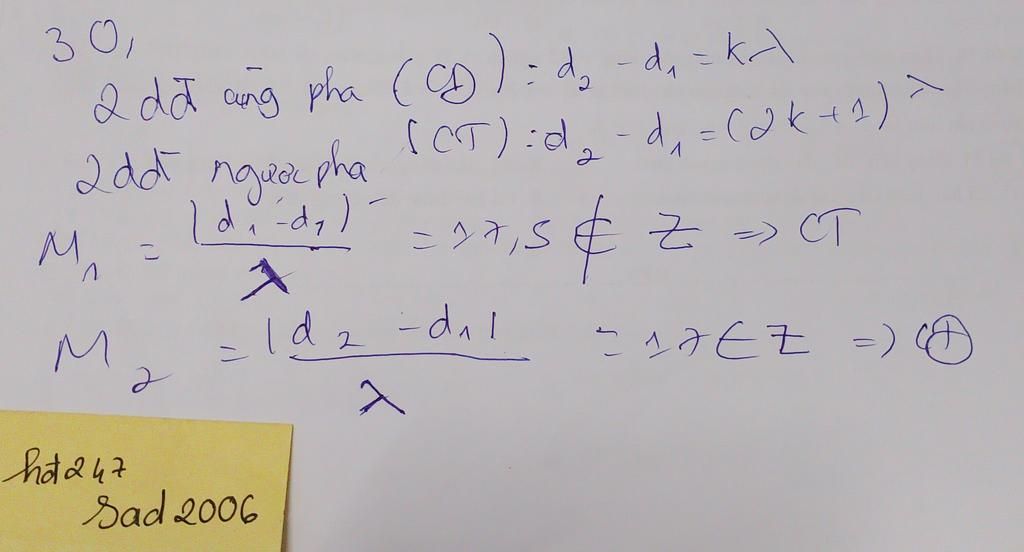 30,
2 dđ cùng pha (CĐ) : d₂ - d₁ = kλ
2dđ ngược pha (CT) : d₂ - d₁ = (2k+1) λ
M₁ = |d₁ - d₂| / λ = 17,5 ∉ Z => CT
M₂ = |d₂ - d₁| / λ = 17 ∈ Z => CĐ
hot247
sad2006